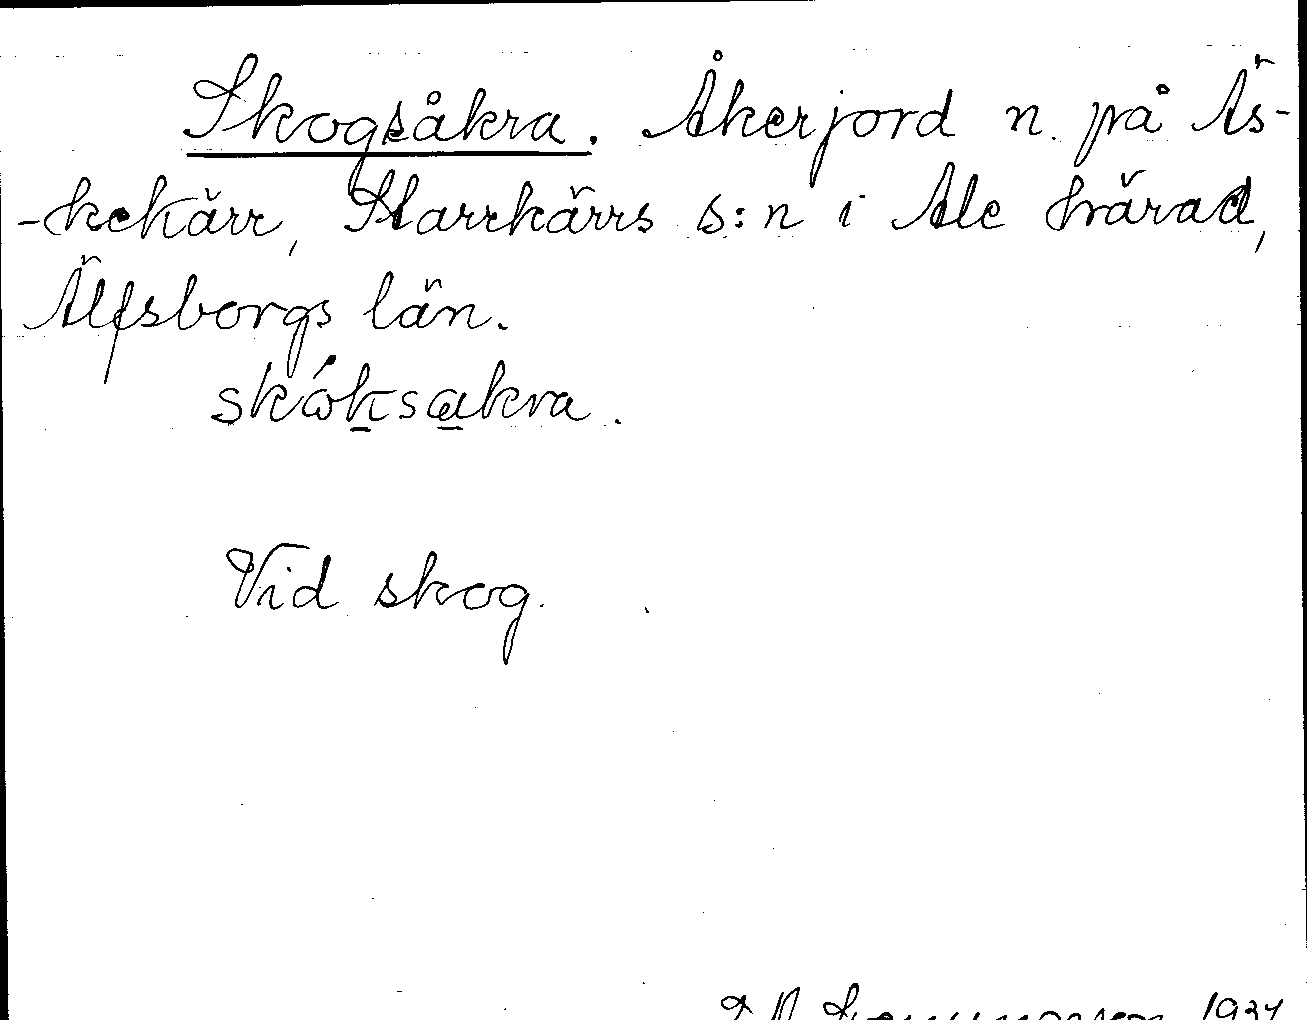 Skogsåkra. Åkerjord n. på Äs-
-kekärr, Starrkärrs s:n i Ale härad,
Älfsborgs län.
skóksakra.
Vid skog.
1937